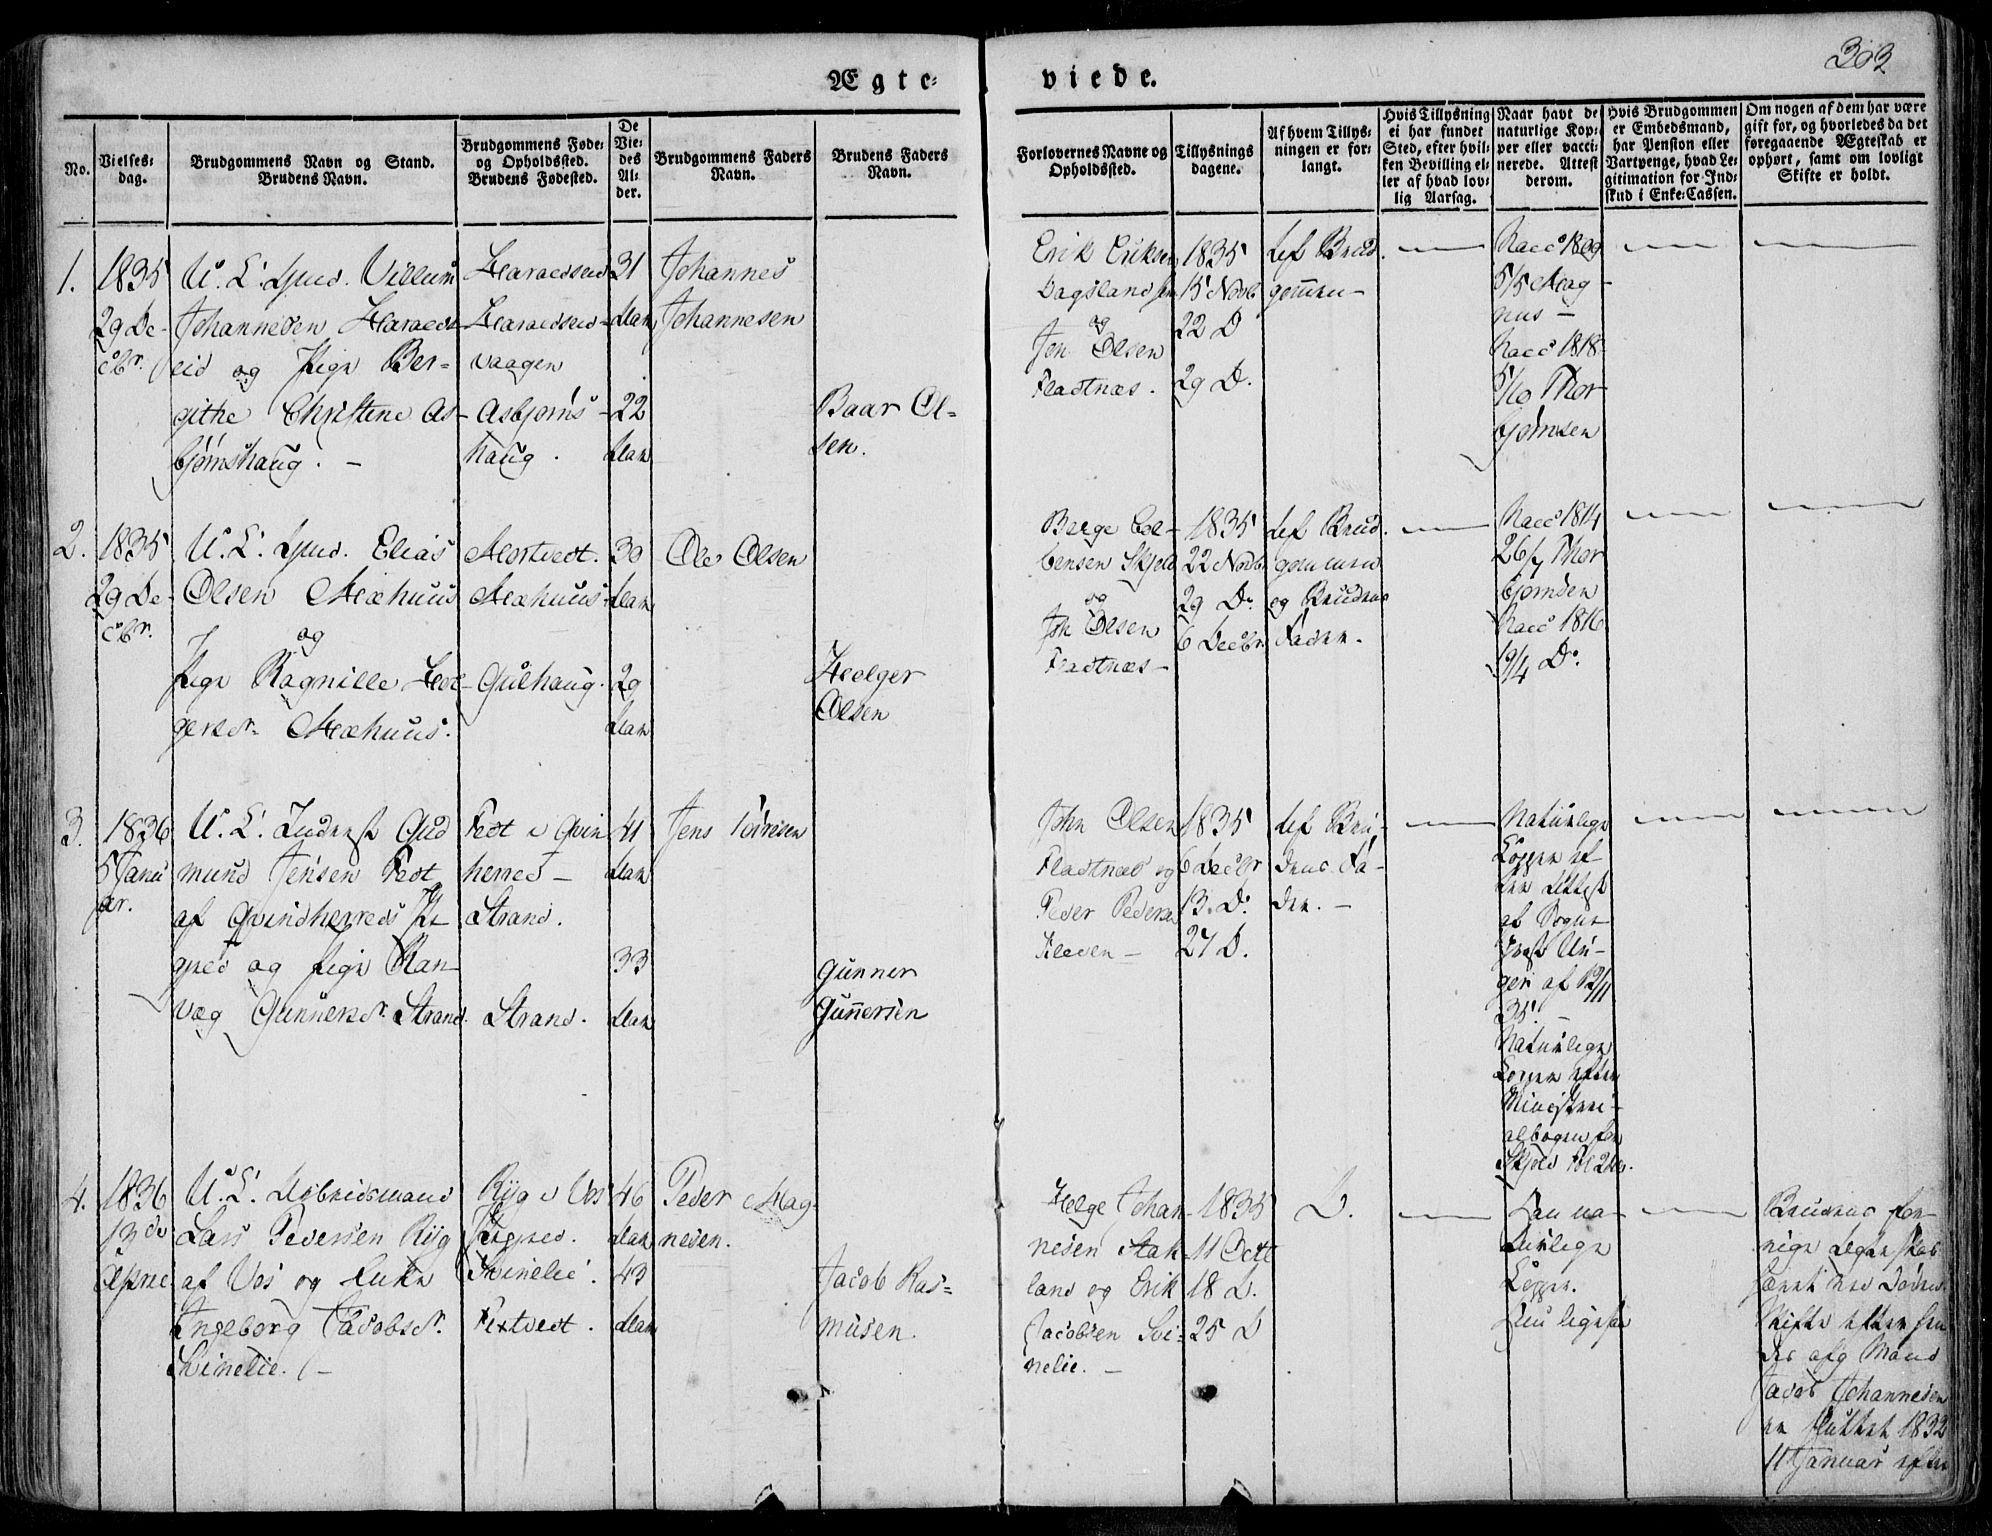 303
Ægte= viede.
No.
Vielses= dag.
Brudgommens Navn og Stand. Brudens Navn.
Brudgommens Føde= og Opholdssted. Brudens Fødested.
De Vie= des Al= der.
Brudgommens Faders Navn.
Brudens Faders Navn.
Forlovernes Navne og Opholdssted.
Tillysnings dagene.
Af hvem Tillys= ningen er for= langt.
Hvis Tillysning ei har fundet Sted, efter hvil= ken Bevilling el= ler af hvad lov= lig Aarsag.
Naar havt de naturlige Kop= per eller vacci= nerede. Attest derom.
Hvis Brudgommen er Embedsmand, har Pension eller Vartpenge, hvad Le= gitimation for Ind= skud i Enke=Cassen.
Om nogen af dem har være gift for, og hvorledes da det foregaaende Ægteskab er ophørt, samt om lovligt Skifte er holdt.
1.
1835
29 De-
cbr.
U. L. Gmd. Villum
Johannesen Haraeds
eid og Pige Ber-
githe Christene As-
bjørnshaug. -
Haraedseid
Haraedseid-
vaagen
Asbjørns-
haug.
31
Aar
22
Aar
Johannes
Johannesen
Baar Ol-
sen.
Erik Eriksen
Dagsland
og
Jon Olsen
Fladtnæs.
1835
15 Novb
22 D
29 D.
af Brud
gommen -
Vacc 1809
5/5 Mag-
nus -
Vacc 1818
5/10 Thor
bjørnsen
2.
1835
29 De-
cbr.
U. L. Gmd. Elias
Olsen Mæhuus
og
Pige Ragnille Hel-
gersdr. Mæhuus.
Mortvedt.
Mæhuus
Gulhaug.
30
Aar
29
Aar
Ole Olsen
Helger
Olsen
Berge Tor-
bensen Skjold
og
Jon Olsen
Fladtnæs -
1835
22 Novbr
29 D.
6 Decbr.
af Brud
gommen
og Brudens
Fader.
Vacc 1814
26/7 Thor
bjørnsen
Vacc 1816
19/4 D.
3.
1836
5 Janu
ar.
U. L. Inderst Gud
mund Jensen Fedt
af Qvindherreds Præ
gjeld og Pige Ran-
væg Gunnersdr. Strand.
Fedt i Qvin
herred -
Strand.
Strand.
41
Aar
33
Aar
Jens
Gunner
Gunnersen
John Olsen
Fladtnæs og
Peder Pedersen
Kleven -
1835
6 Decbr
13. D.
27 D.
af Bru-
dens Fa-
der. -
Naturlige
Kopper ef-
ter Attest
af Sogne-
Præst Un-
ger af 12/11
35. -
Naturlige
Kopper efter
Ministeri-
albogen for
Skjold Fol
4.
1836
13 de
April
U. L. Arbeidsmand
Lars Pedersen Ryg
af Vos og Enke
Ingeborg Jacobsdr.
Svinelie. -
Ryg i Vos
Præstegjeld.
Svinelie.
Fextvedt.
46
Aar
43
Aar
Peder Mag-
nesen.
Jacob Ras-
musen.
Helge Johan-
nesen Stak-
land og Erik
Jacobsen Svi-
nelie. -
1835
11 Octb
18 D.
25 D
D.
Han na-
turlige
Kopper.
Hun ligesaa
Brudens for-
rige Ægteskab
hævet ved Døden.
Skifte efter hen
des afg Mand
Jacob Johannesen
er sluttet 1832
11 Januar efter